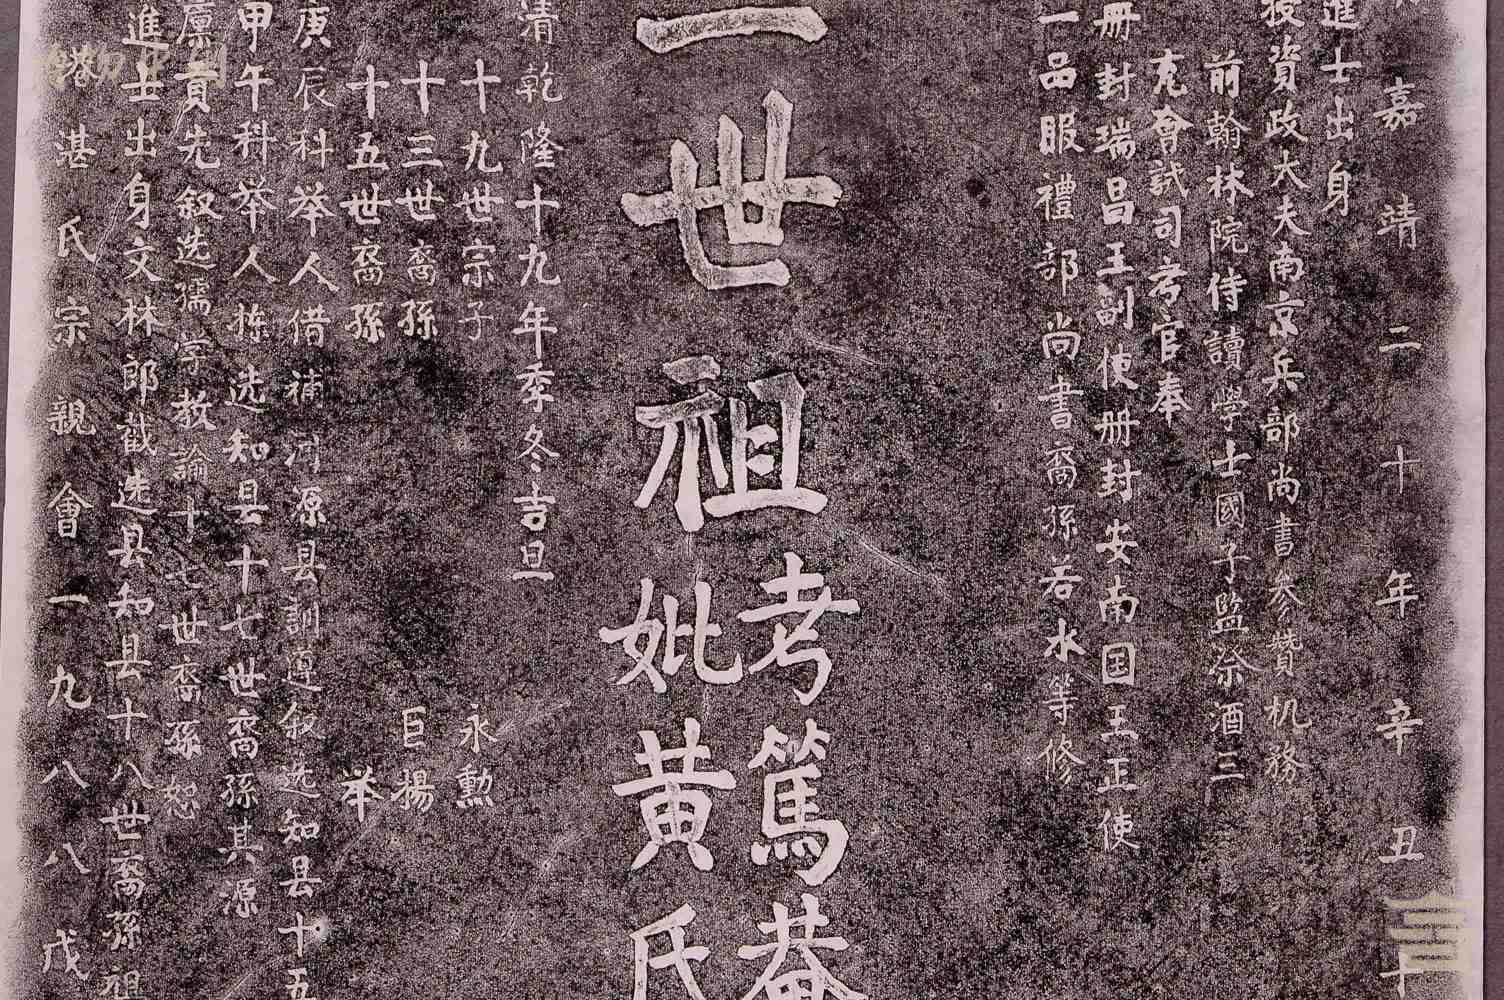 嘉靖二十年辛丑十
進士出身
授資政大夫南京兵部尚書參贊机務
前翰林院侍讀學士國子監祭酒三
充會試司考官奉
册封瑞昌王副使册封安南国王正使
一品服禮部尚書裔孫若水等修
一世祖
考篤菴
妣黄氏
清乾隆十九年季冬吉旦
十九世宗子永勳
十三世裔孫巨揚
十五世裔孫举
庚辰科举人借補河源县訓導叙选知县十五
甲午科举人拣选知县十七世裔孫其源
廪貢先叙选孺学教諭十七世裔孫恕
進士出身文林郎截选县知县十八世裔孫祖
湛氏宗親會一九八八戊